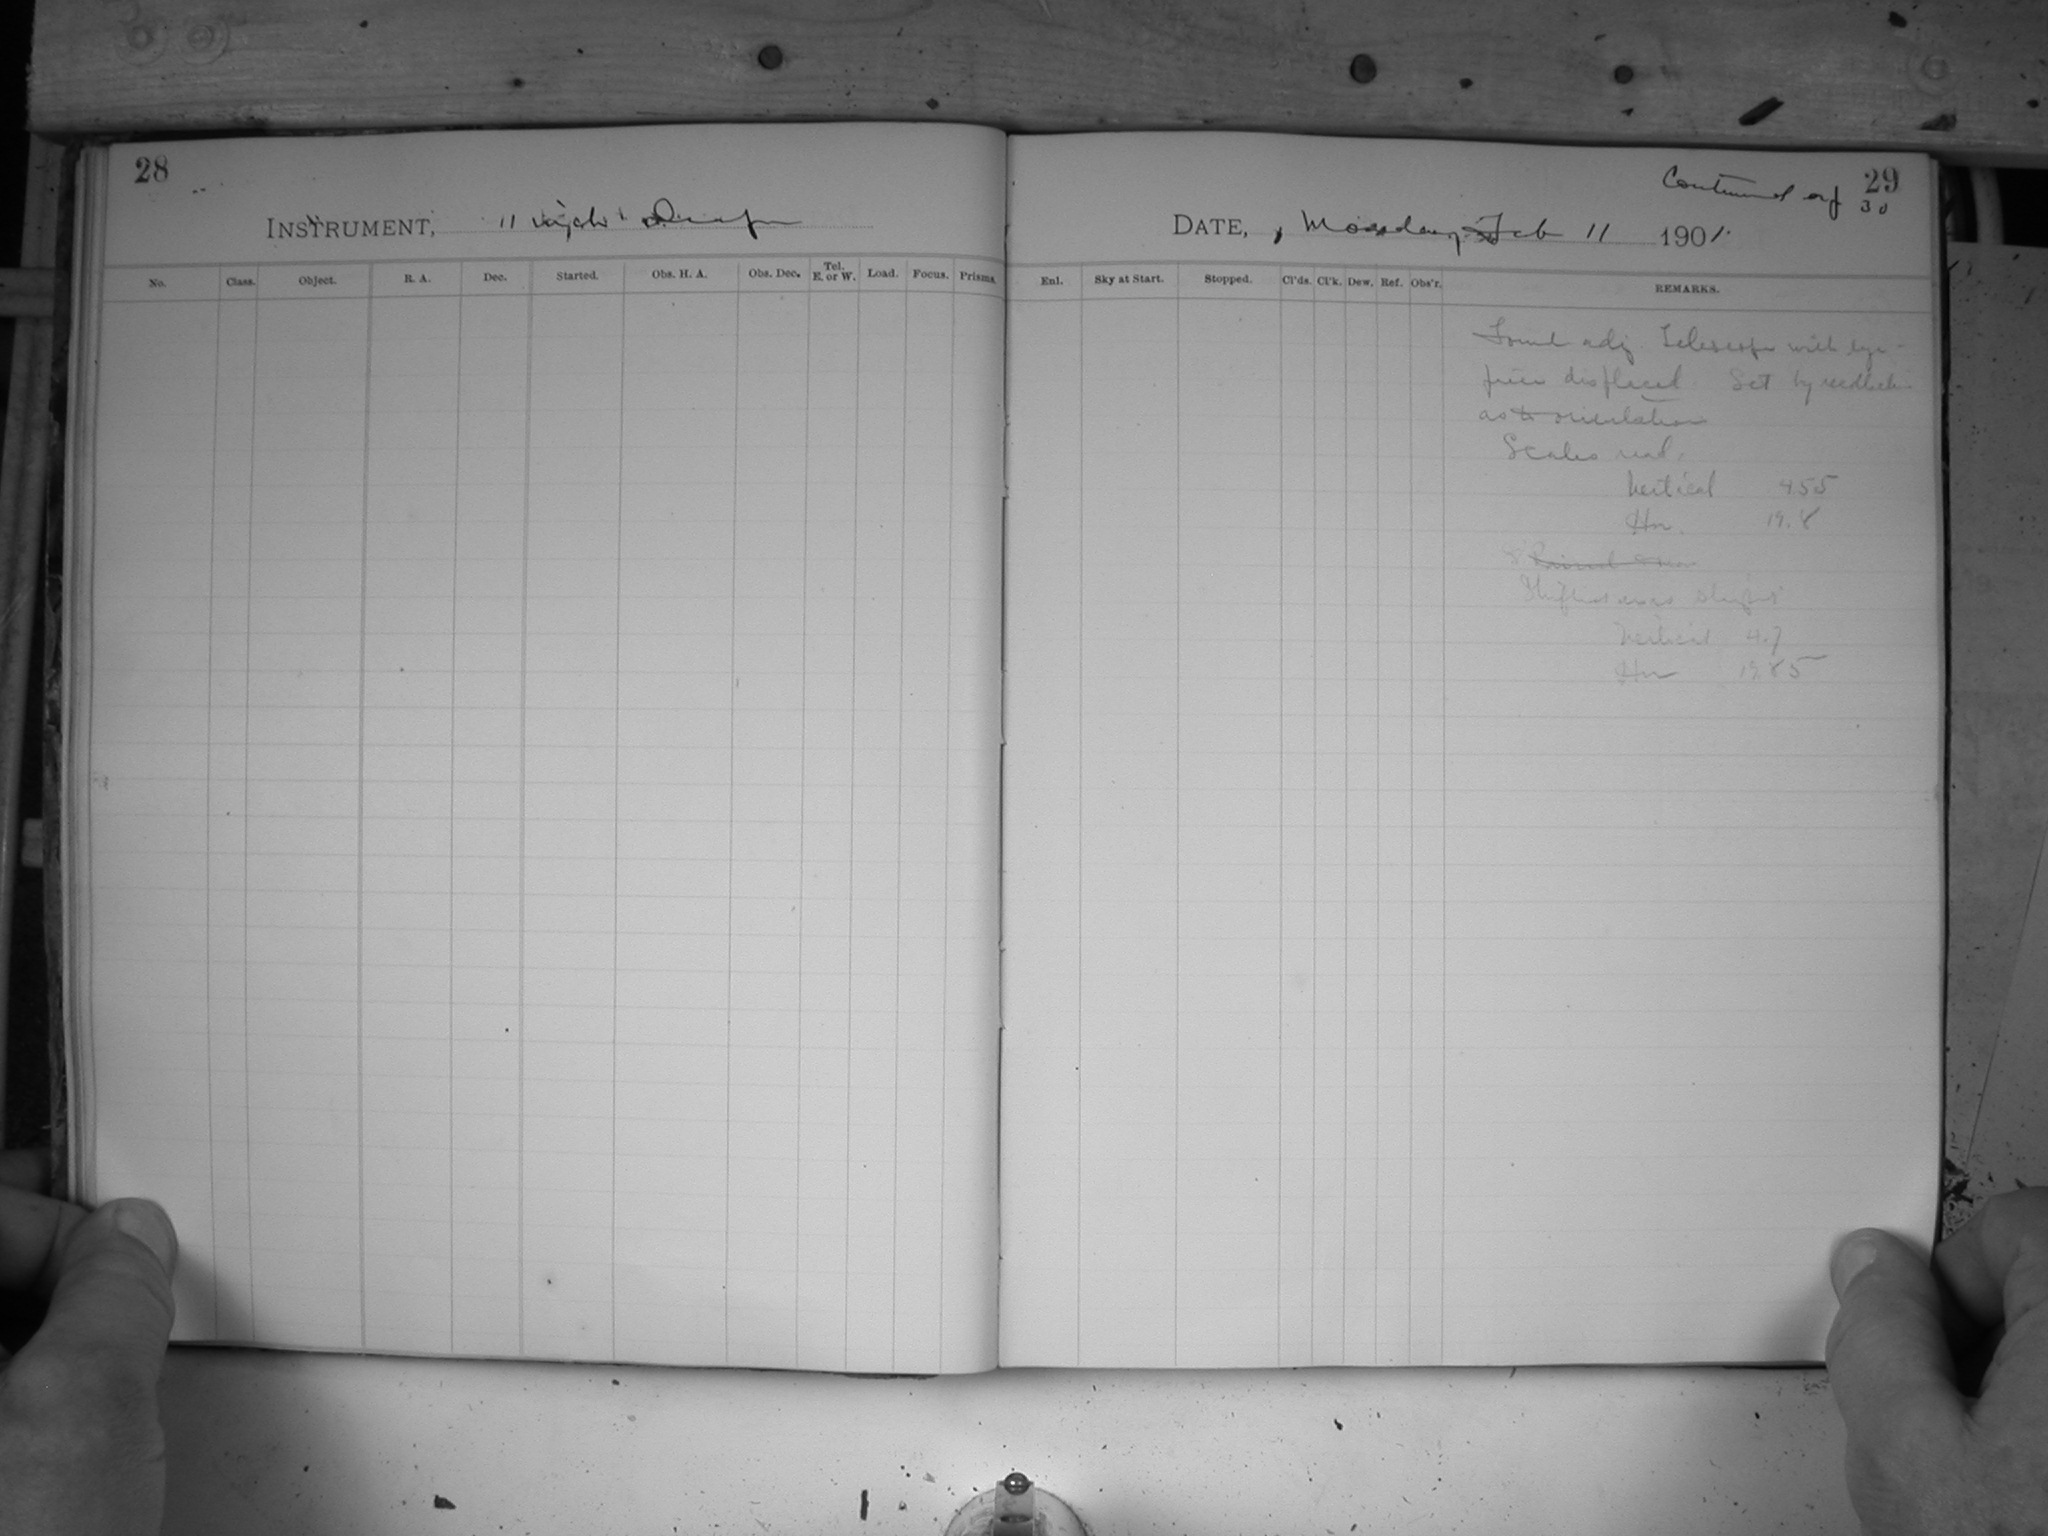 28
INSTRUMENT, 11 inch Draper
No. Class. Object. R. A. Dec. Started. Obs. H. A. Obs. Dec. Tel. E. or W. Load. Focus. Prisms.
Continued on 30
29
DATE, Monday Feb 11 1901.
Enl. Sky at Start. Stopped. Cl'ds. Cl'k. Dew. Ref. Obs'r. REMARKS.
Found adj. Telescope with eye-
piece displaced. Set by
as to orientation
Scales read.
Vertical 455
Hor. 19.8
Vertical 4.7
Hor 19.85